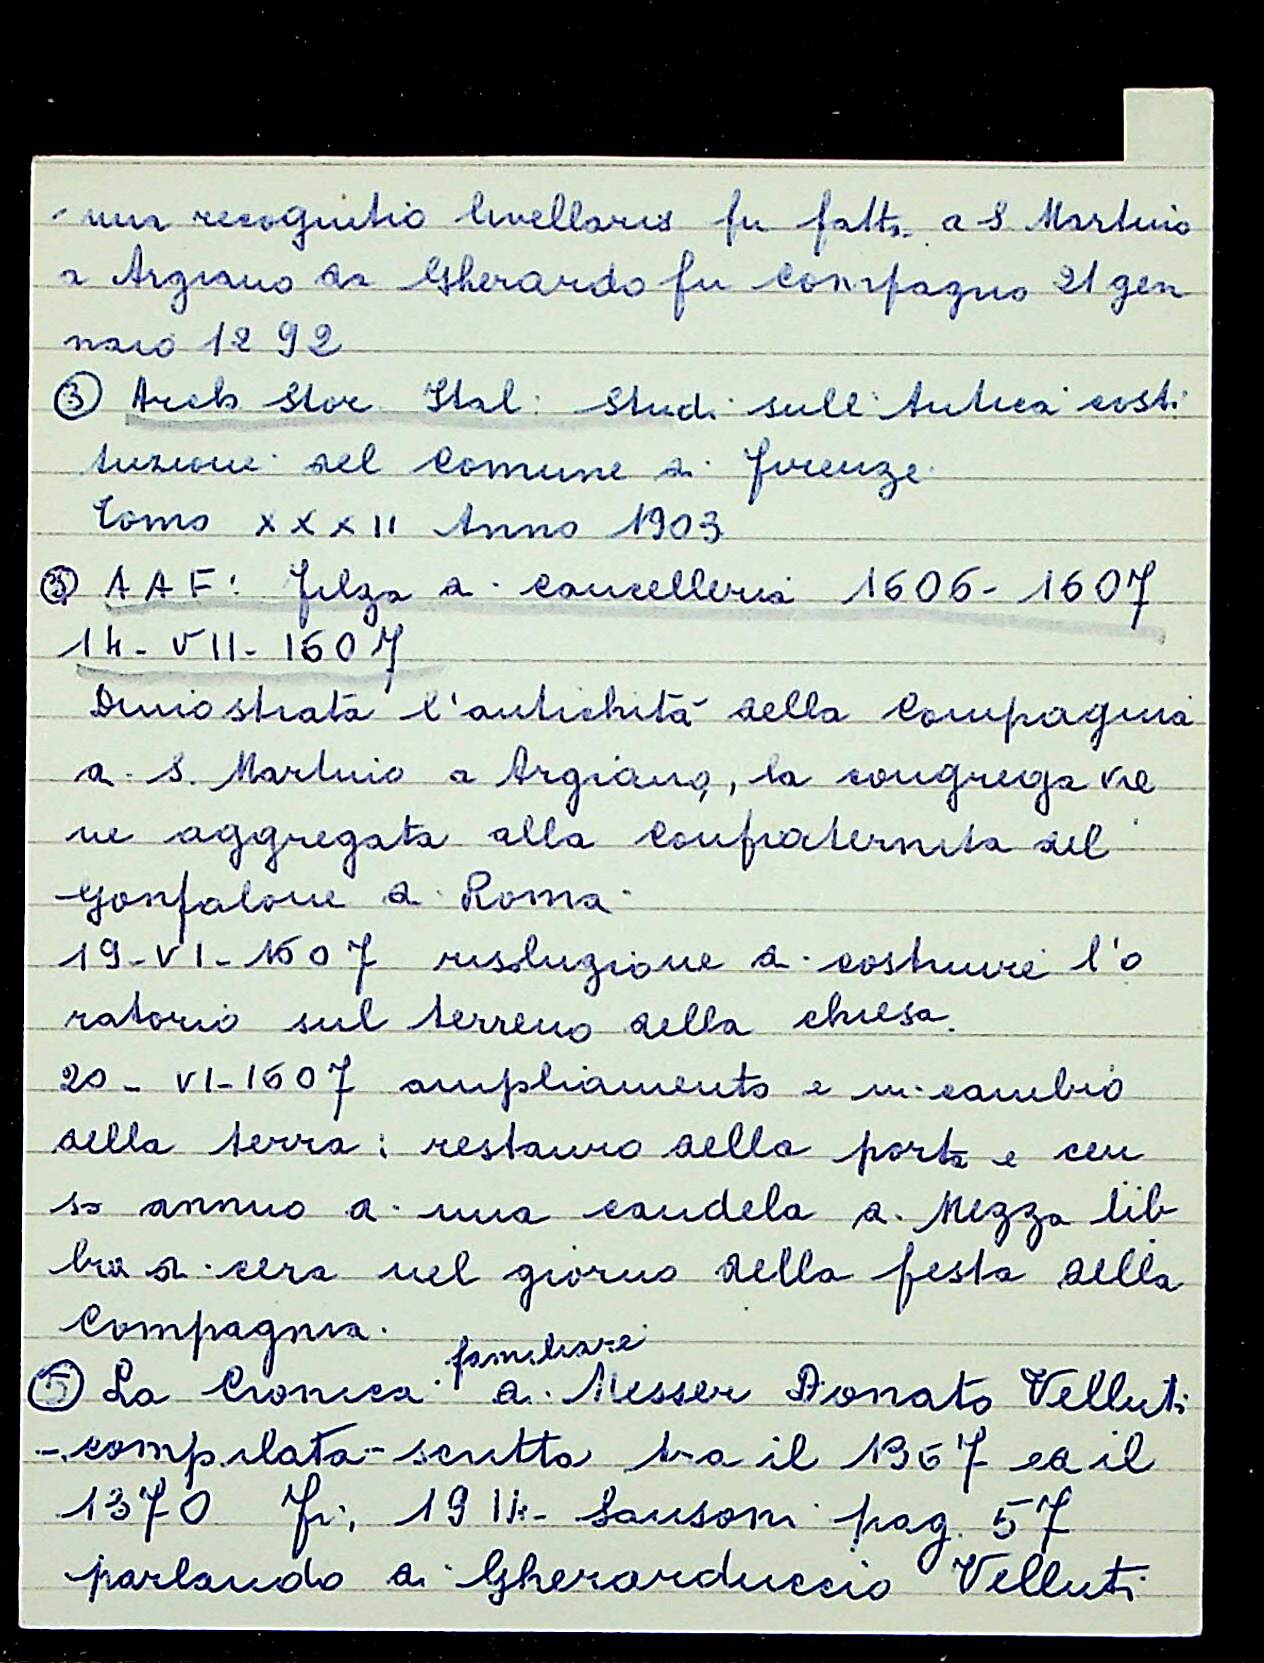 - una recognitio livellaris fu fatta a S Martino
a Argiano da Gherardo fu Compagno 21 gen
naio 1292
③ Arch Stor Ital: Studi sull'Antica costi
tuzione del Comune di Firenze
Tomo XXXII Anno 1903
AAF: filza di cancelleria 1606-1607
14-VII-1607
Dimostrata l'antichità della Compagnia
di S. Martino a Argiano, la congrega vie
ne aggregata alla confraternita del
Gonfalone di Roma.
19-VI-1607 risoluzione di costruire l'o
ratorio sul terreno della chiesa.
20-VI-1607 ampliamento e in cambio
della terra: restauro della porta e cen
so annuo di una candela di Mezza lib
bra di cera nel giorno della festa della
Compagnia.
familiare
⑤ La Cronica di Messer Donato Velluti
- compilata - scritta tra il 1367 ed il
1370 Fi, 1914- Sansoni pag. 57
parlando di Gherarduccio Velluti